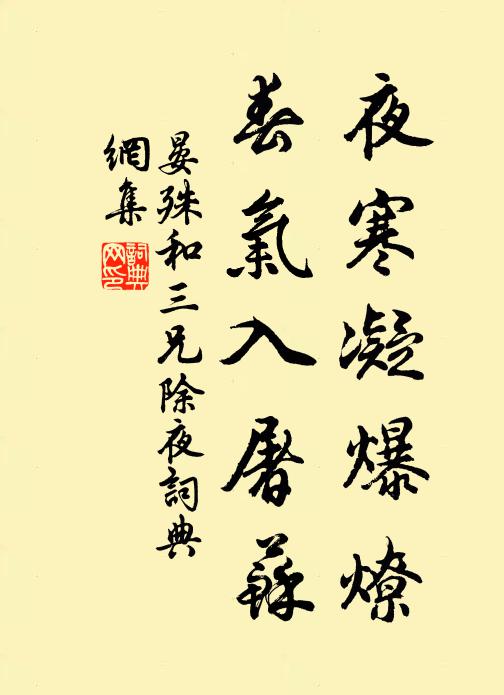 夜寒凝爆燎
春氣入屠蘇
晏殊和三兄除夜詞典
網集
詞典网印